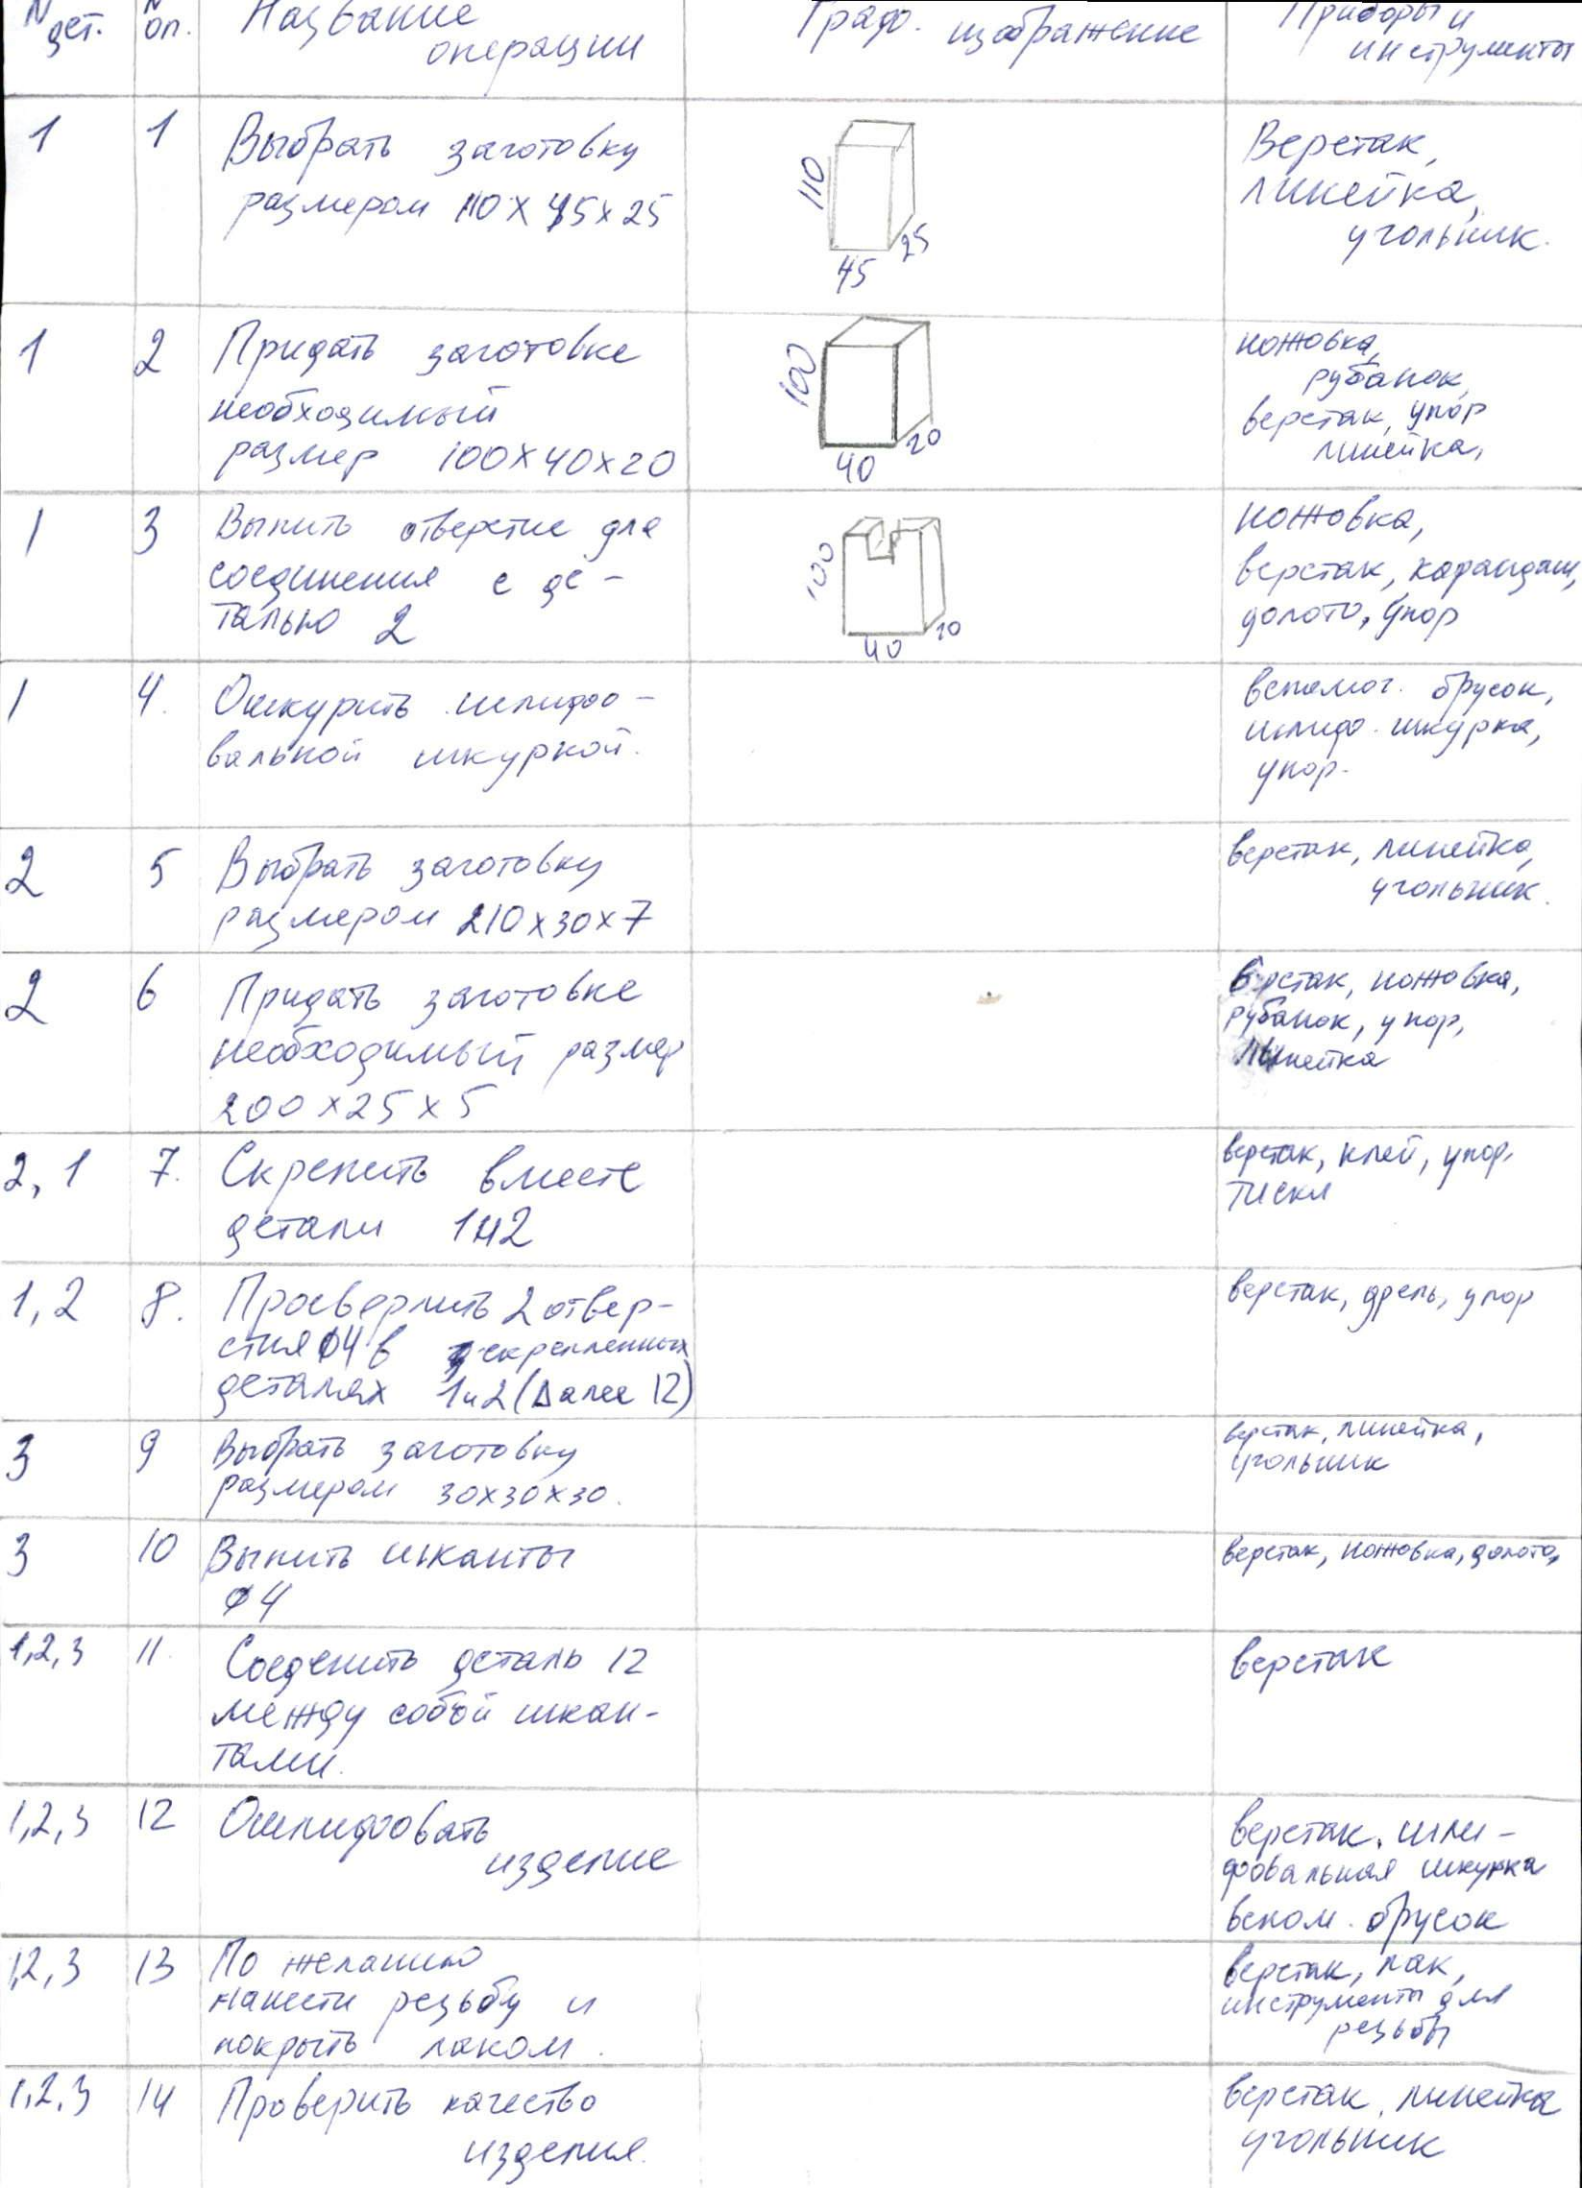 N дет.
N оп.
Название
операции
Граф. изображение
Приборы и
инструменты
1
1
Выбрать заготовку
размером 110 х 45 х 25
110
45
25
Верстак,
линейка,
угольник.
1
2
Придать заготовке
необходимый
размер 100х40х20
100
40
20
ножовка,
рубанок,
верстак, упор
линейка,
1
3
Выпить отверстие для
соединения с де-
талью 2
100
40
20
ножовка,
верстак, карандаш,
долото, упор
1
4.
Ошкурить шлифо-
вальной шкуркой.
вспомог. брусок,
шлиф. шкурка,
упор.
2
5
Выбрать заготовку
размером 210х30х7
верстак, линейка,
угольник.
2
6
Придать заготовке
необходимый размер
200х25х5
верстак, ножовка,
рубанок, упор,
линейка
2, 1
7.
Скрепить вместе
детали 1и2
верстак, клей, упор,
тиски
1, 2
8.
Просверлить 2 отвер-
стия ф4 в скрепленных
деталях 1и2 (Далее 12)
верстак, дрель, упор
3
9
Выбрать заготовку
размером 30х30х30.
верстак, линейка,
угольник
3
10
Выпить шканты
ф4
верстак, ножовка, долото,
1,2,3
11.
Соеденить деталь 12
между собой шкан-
тами.
верстак
1,2,3
12
Ошлифовать
изделие
верстак, шли-
фовальная шкурка
вспом. брусок
1,2,3
13
По желанию
нанести резьбу и
покрыть лаком.
верстак, лак,
инструменты для
резьбы
1,2,3
14
Проверить качество
изделия.
верстак, линейка
угольник